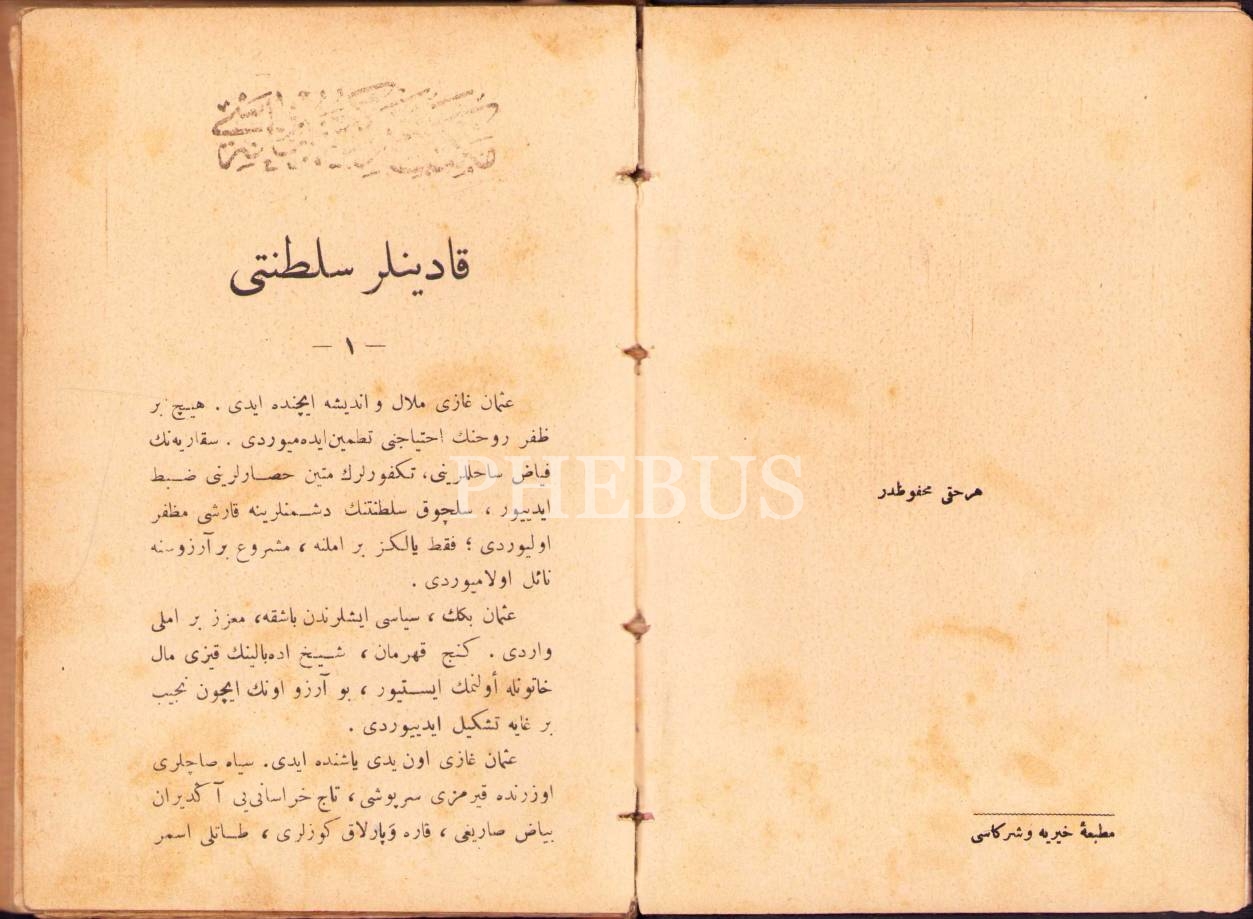 هر حقی محفوظدر
مطبعهٔ خیریه و شرکاسی
قادینلر سلطنتی
— ١ —
عثمان غازی ملال و اندیشه ایچنده ایدی . هیچ بر
ظفر روحنك احتیاجنی تطمین ایده‌میوردی . سقاریه‌نك
فیاض ساحللرینی، تكفورلرك متین حصارلرینی ضبط
ایدییور ، سلچوق سلطنتنك دشمنلرینه قارشی مظفر
اولیوردی ؛ فقط یالكز بر املنه ، مشروع بر آرزوسنه
نائل اولامیوردی .
عثمان بكك ، سیاسی ایشلرندن باشقه، معزز بر املی
واردی . كنج قهرمان ، شیخ اده‌بالینك قیزی مال
خاتونله أولنمك ایستیور ، بو آرزو اونك ایچون نجیب
بر غایه تشكیل ایدییوردی .
عثمان غازی اون یدی یاشنده ایدی. سیاه صاچلری
اوزرنده قیرمزی سرپوشی ، تاج خراسانی‌یی آكدیران
بیاض صاریغی ، قاره و پارلاق كوزلری ، طاتلی اسمر
PHEBUS